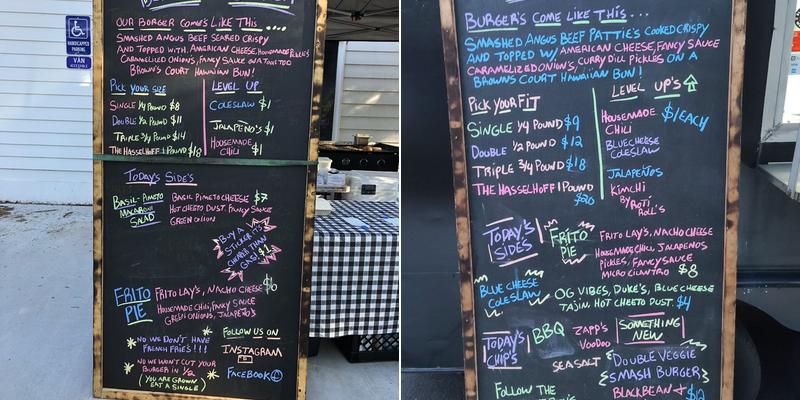 HANDICAPPED
PARKING
VAN
ACCESSIBLE
OUR BORGER COME'S LIKE THIS....
SMASHED ANGUS BEEF SEARED CRISPY
AND TOPPED WITH, AMERICAN CHEESE, HOMEMADE PICKLE'S
CARAMELIZED ONIONS, FANCY SAUCE ON A TOASTED
BROWN'S COURT HAWAIIAN BUN!
PICK YOUR SIZE
SINGLE 1/4 POUND $8
DOUBLE 1/2 POUND $11
TRIPLE 3/4 POUND $14
THE HASSELHOFF 1 POUND $18
LEVEL UP
COLESLAW $1
JALAPEÑO'S $1
HOUSEMADE
CHILI $1
TODAY'S SIDE'S
BASIL-PIMETO
MACARONI
SALAD
BASIL PIMETO CHEESE $7
HOT CHEETO DUST, FANCY SAUCE
GREEN ONION
BUY A
STICKER IT'S
CHEAPER THAN
GAS! $1
FRITO
PIE
FRITO LAY'S, NACHO CHEESE $6
HOUSEMADE CHILI, FANCY SAUCE
GREEN ONIONS, JALAPEÑO'S
NO WE DON'T HAVE
FRENCH FRIE'S!!!
NO WE WON'T CUT YOUR
BURGER IN 1/2
(YOU ARE GROWN
EAT A SINGLE)
FOLLOW US ON
INSTAGRAM
FACEBOOK
BURGER'S COME LIKE THIS...
SMASHED ANGUS BEEF PATTIE'S COOKED CRISPY
AND TOPPED W/ AMERICAN CHEESE, FANCY SAUCE
CARAMELIZED ONION'S, CURRY DILL PICKLES ON A
BROWNS COURT HAWAIIAN BUN!
PICK YOUR FIT
SINGLE 1/4 POUND $9
DOUBLE 1/2 POUND $12
TRIPLE 3/4 POUND $18
THE HASSELHOFF 1 POUND
$20
LEVEL UP'S
HOUSEMADE $1/EACH
CHILI
BLUE CHEESE
COLESLAW
JALAPEÑOS
KIMCHI
BY ROTI
ROLL'S
TODAY'S
SIDES
FRITO
PIE
FRITO LAY'S, NACHO CHEESE
HOUSEMADE CHILI, JALAPENOS
PICKLES, FANCY SAUCE
MICRO CILANTRO $8
BLUE CHEESE
COLESLAW
OG VIBES, DUKE'S, BLUE CHEESE
TAJIN, HOT CHEETO DUST $4
TODAY'S
CHIP'S
BBQ
ZAPP'S
VOODOO
SEA SALT
SOMETHING
NEW
DOUBLE VEGGIE
SMASH BURGER
BLACK BEAN + $12
FOLLOW THE